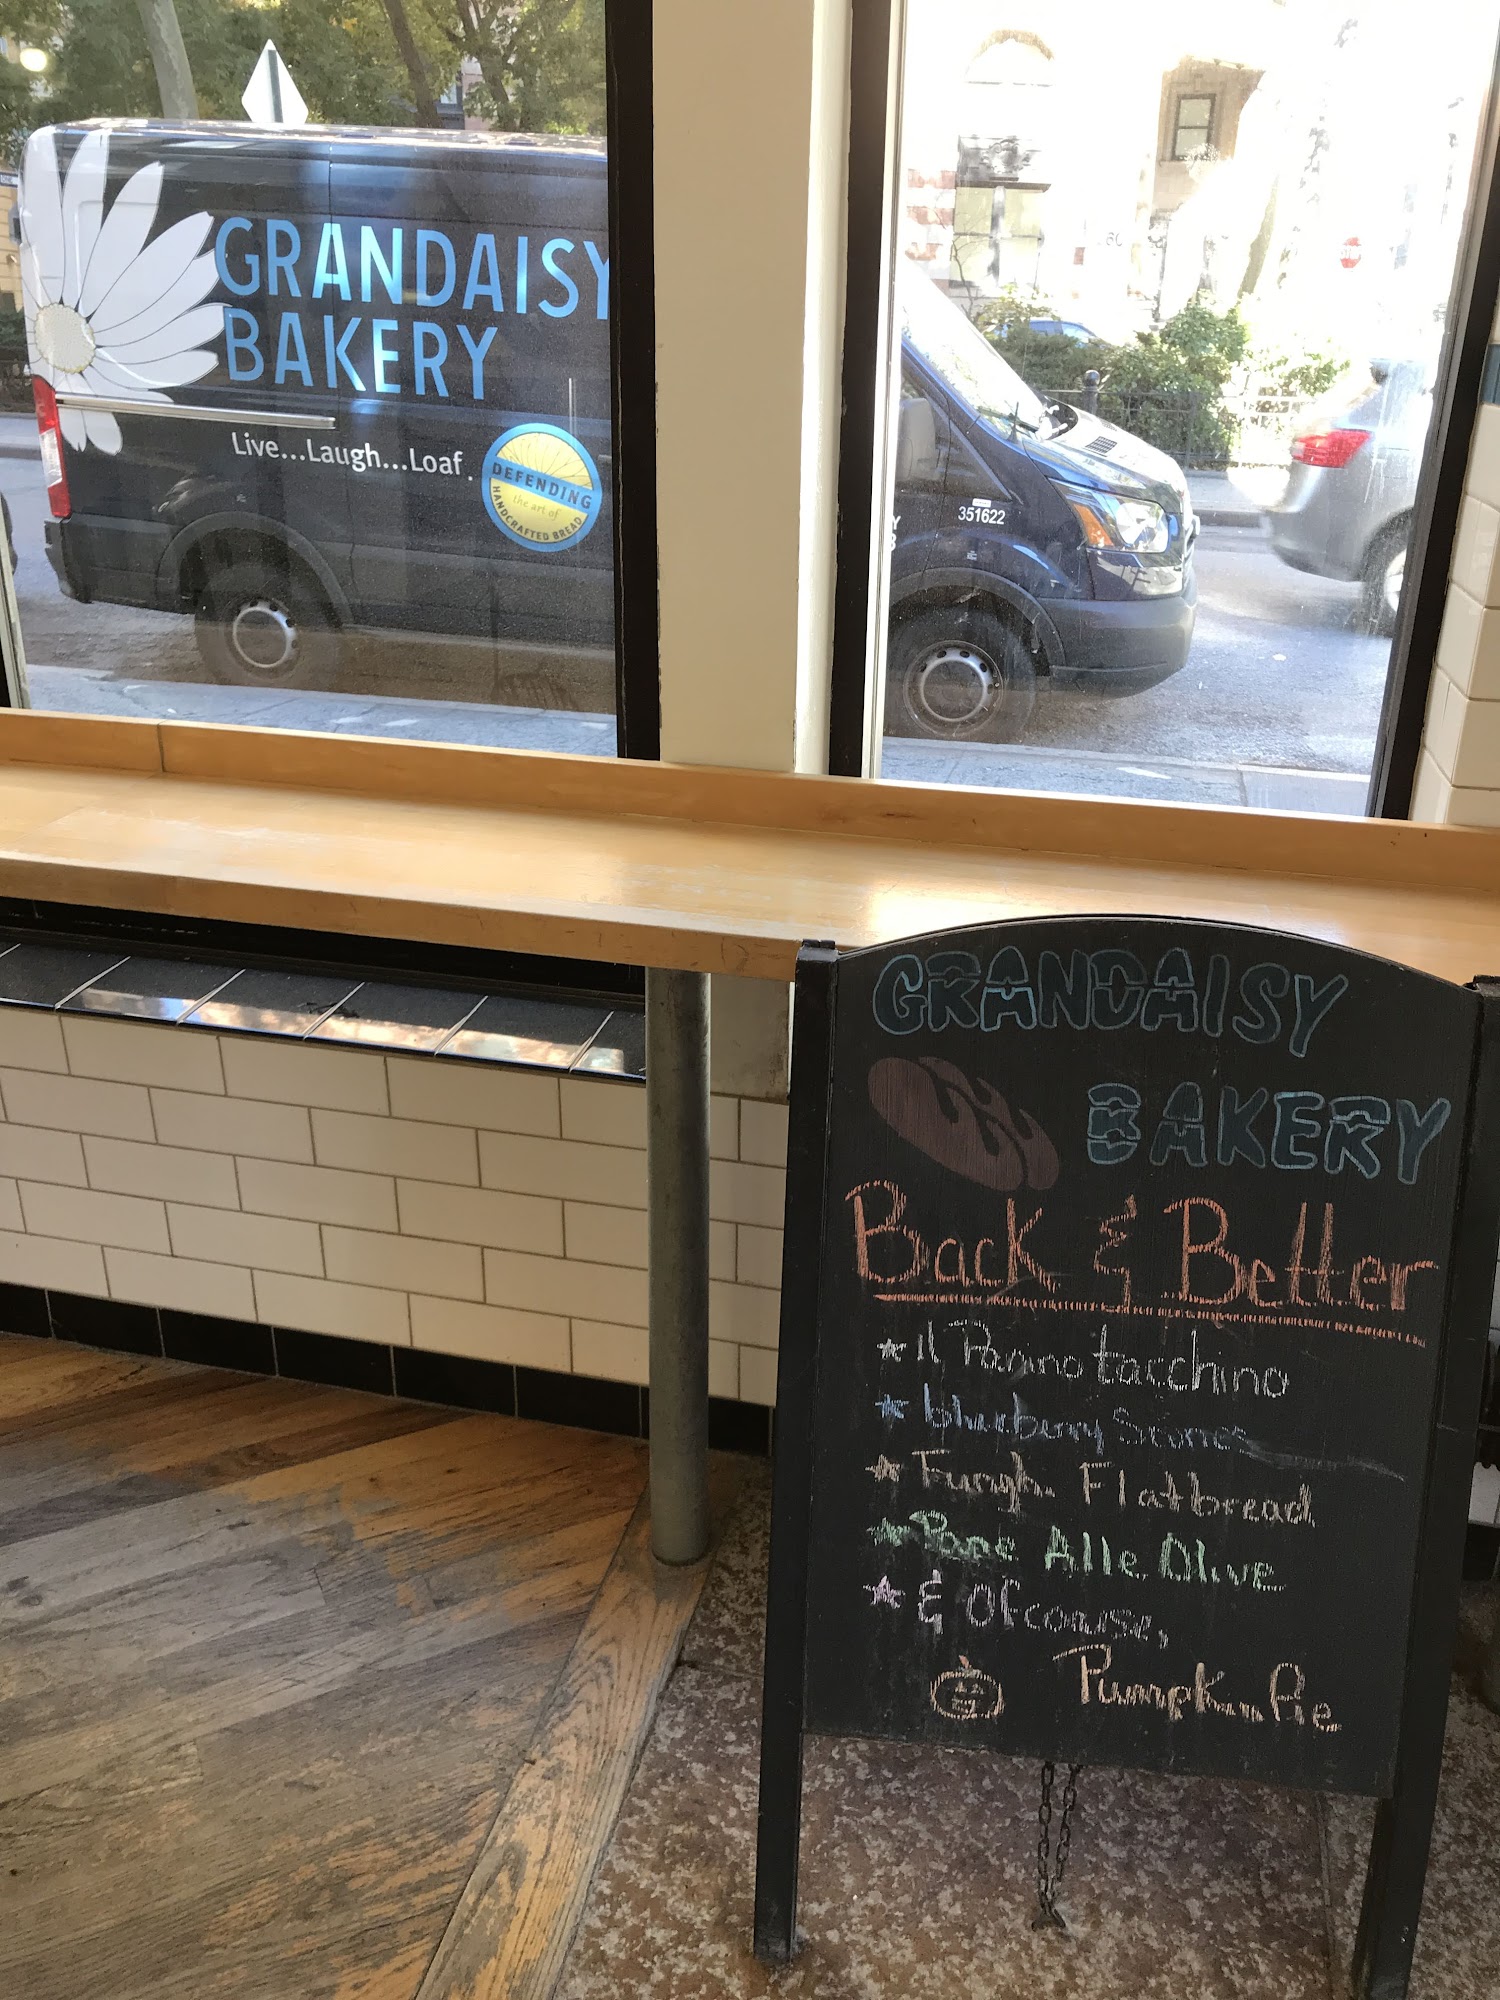 GRANDAISY
BAKERY
Live...Laugh...Loaf.
DEFENDING
the art of
HANDCRAFTED BREAD
351622
GRANDAISY
BAKERY
Back & Better
* il Panino tacchino
* blueberry Scones
* Funghi Flatbread
* Pane Alle Olive
* & Of course,
Pumpkin Pie